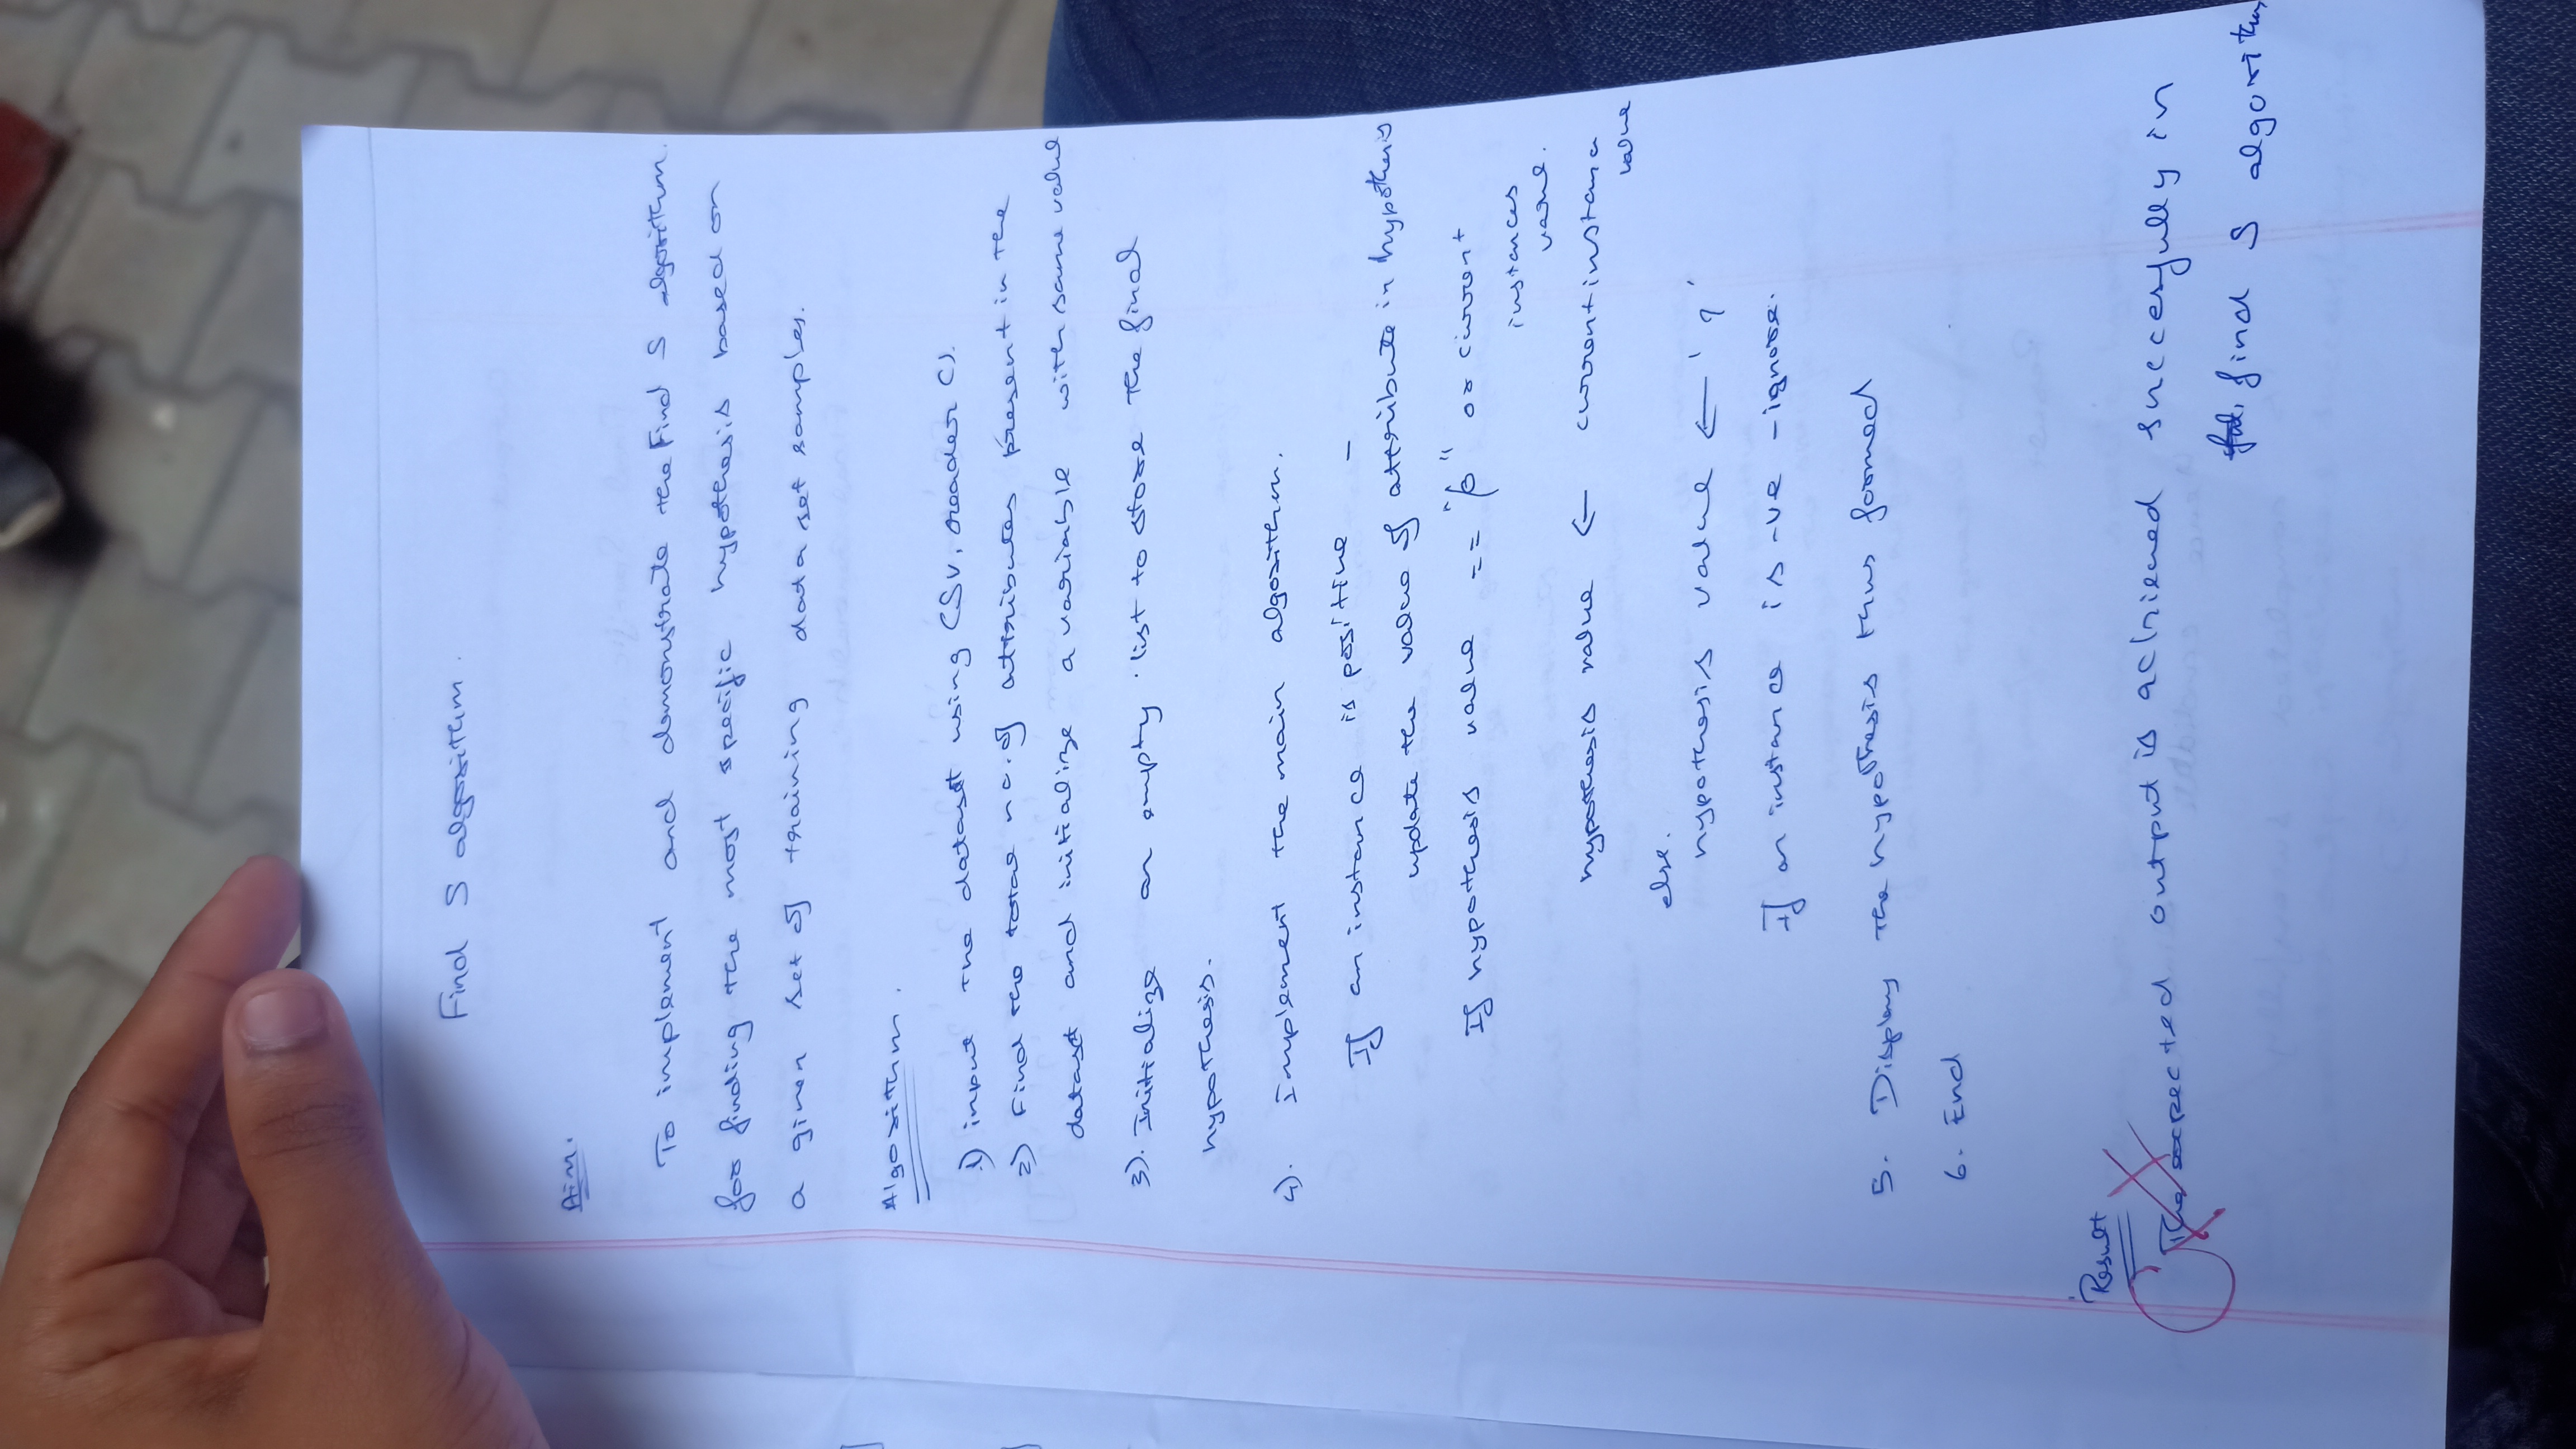 Find S algorithm.
Aim.
To implement and demonstrate the Find S algorithm.
for finding the most specific hypothesis based on
a given set of training data set samples.
Algorithm.
1) input the dataset using CSV.reader C).
2) Find the total no. of attributes present in the
dataset and initialize a variable with same value
3). Initialize an empty list to store the final
hypothesis.
4). Implement the main algorithm.
If an instance is positive -
update the value of attribute in hypothesis
If hypothesis value == "ϕ" or current
instances
value.
hypothesis value ← current instance
value
else.
hypothesis value ← '?'
If an instance is -ve - ignore.
5. Display the hypothesis thus formed
6. End
Result
The expected output is achieved successfully in
find S algorithm